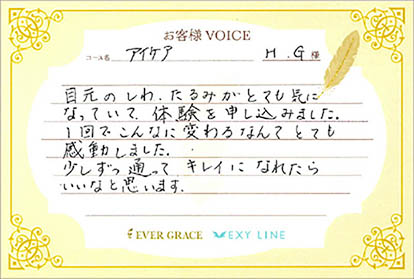 お客様 VOICE
コース名 アイケア H.G 様
目元のしわ、たるみがとても気に
なっていて、体験を申し込みました。
1回でこんなに変わるなんてとても
感動しました。
少しずつ通って キレイに なれたら
いいなと思います。
EVER GRACE EXY LINE